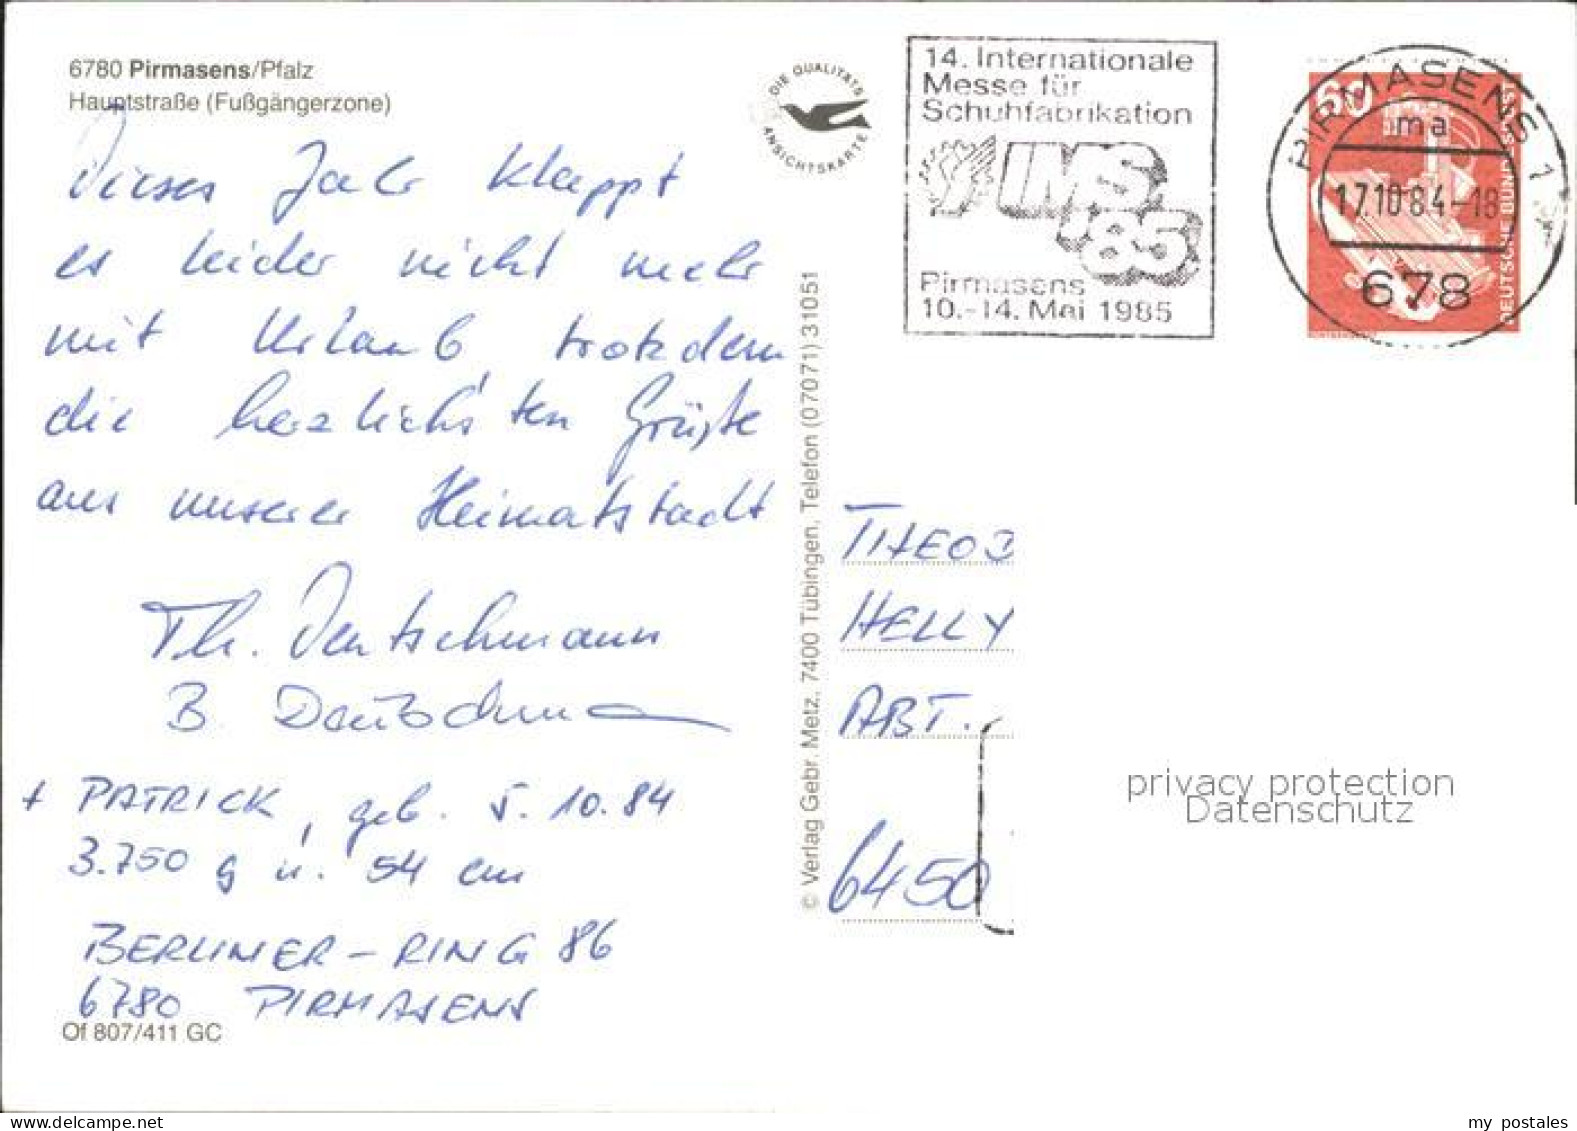 6780 Pirmasens/Pfalz
Hauptstraße (Fußgängerzone)
Dieses Jahr klappt
es leider nicht mehr
mit Urlaub, trotzdem
die herzlichsten Grüße
aus unserer Heimatstadt
Th. Deutschmann
B. Deutschmann
+ PATRICK, geb. 5.10.84
3.750 g u. 54 cm
BERLINER-RING 86
6780 PIRMASENS
Of 807/411 GC
DIE QUALITÄTS
ANSICHTSKARTE
© Verlag Gebr. Metz, 7400 Tübingen, Telefon (07071) 31051
14. Internationale
Messe für
Schuhfabrikation
IMS
'85
Pirmasens
10.-14. Mai 1985
PIRMASENS 1
ma
17.10.84-18
678
60
DEUTSCHE BUNDESPOST
HELLY
ABT.
6450
privacy protection
Datenschutz
my postales